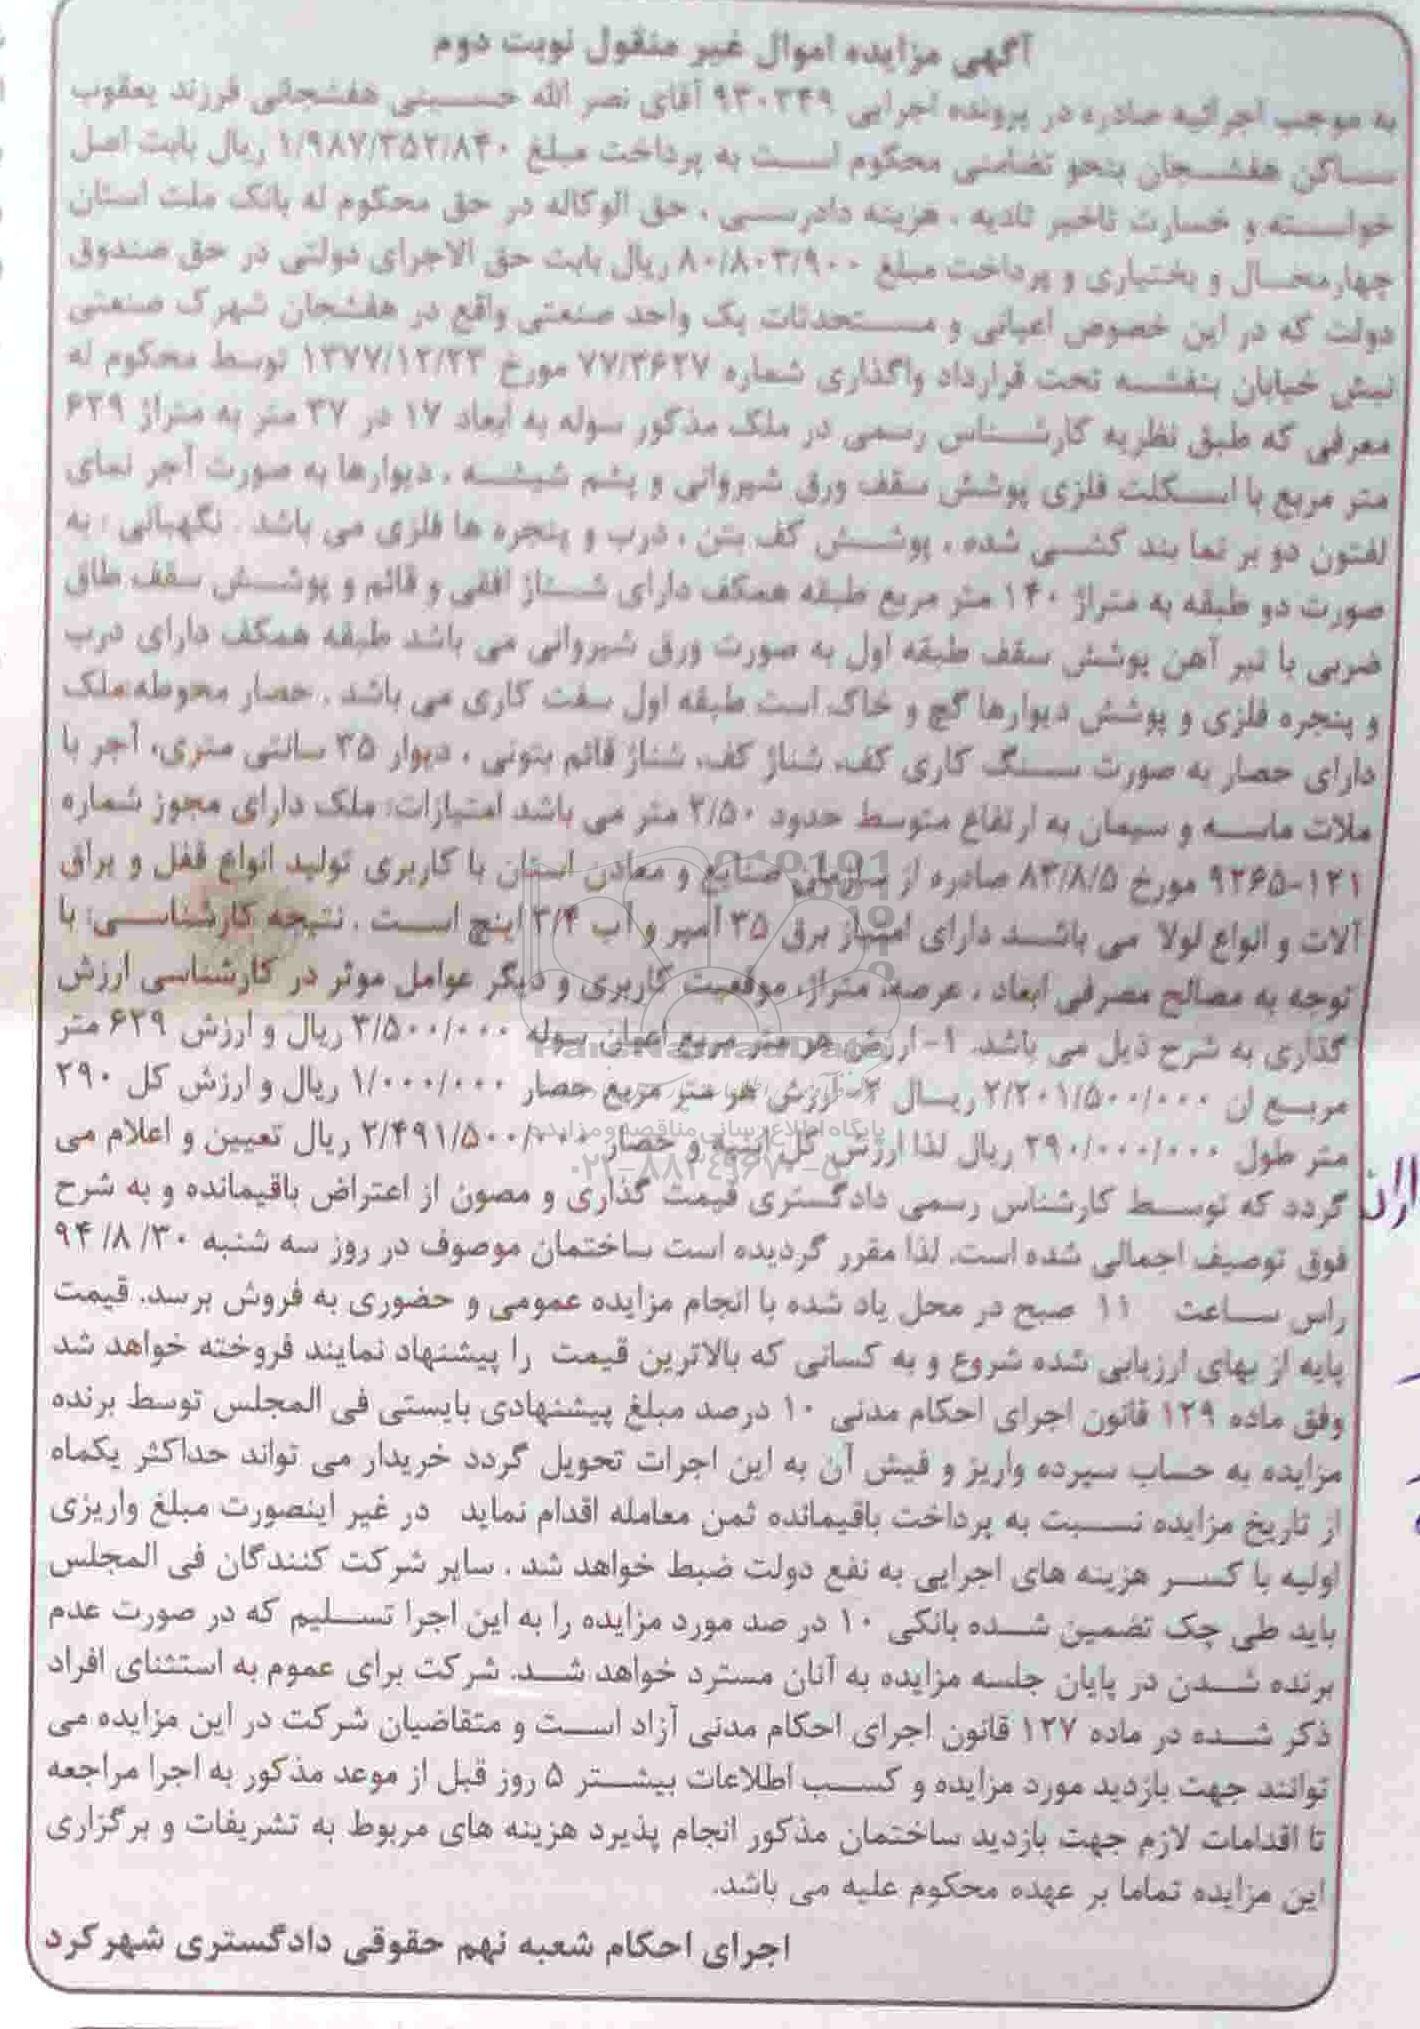 آگهی مزایده اموال غیر منقول نوبت دوم
به موجب اجرائیه صادره در پرونده اجرایی ۹۳۰۳۴۹ آقای نصر الله حسینی هفشجانی فرزند یعقوب
ساکن هفشجان بنحو تضامنی محکوم است به پرداخت مبلغ ۱/۹۸۷/۳۵۲/۸۴۰ ریال بابت اصل
خواسته و خسارت تاخیر تادیه ، هزینه دادرسی ، حق الوکاله در حق محکوم له بانک ملت استان
چهارمحال و بختیاری و پرداخت مبلغ ۸۰/۸۰۳/۹۰۰ ریال بابت حق الاجرای دولتی در حق صندوق
دولت که در این خصوص اعیانی و مستحدثات یک واحد صنعتی واقع در هفشجان شهرک صنعتی
نبش خیابان بنفشه تحت قرارداد واگذاری شماره ۷۷/۳۶۲۷ مورخ ۱۳۷۷/۱۲/۲۳ توسط محکوم له
معرفی که طبق نظریه کارشناس رسمی در ملک مذکور سوله به ابعاد ۱۷ در ۳۷ متر به متراژ ۶۲۹
متر مربع با اسکلت فلزی پوشش سقف ورق شیروانی و پشم شیشه ، دیوارها به صورت آجر نمای
لفتون دو بر نما بند کشی شده ، پوشش کف بتن ، درب و پنجره ها فلزی می باشد . نگهبانی : به
صورت دو طبقه به متراژ ۱۴۰ متر مربع طبقه همکف دارای شناژ افقی و قائم و پوشش سقف طاق
ضربی با تیر آهن پوشش سقف طبقه اول به صورت ورق شیروانی می باشد طبقه همکف دارای درب
و پنجره فلزی و پوشش دیوارها گچ و خاک است طبقه اول سفت کاری می باشد . حصار محوطه:ملک
دارای حصار به صورت سنگ کاری کف، شناژ کف، شناژ قائم بتونی ، دیوار ۳۵ سانتی متری، آجر با
ملات ماسه و سیمان به ارتفاع متوسط حدود ۲/۵۰ متر می باشد امتیازات: ملک دارای مجوز شماره
۹۲۶۵-۱۲۱ مورخ ۸۳/۸/۵ صادره از سازمان صنایع و معادن استان با کاربری تولید انواع قفل و یراق
آلات و انواع لولا می باشد دارای امتیاز برق ۳۵ آمپر و آب ۳/۴ اینچ است . نتیجه کارشناسی: با
توجه به مصالح مصرفی ابعاد ، عرصه، متراژ، موقعیت کاربری و دیگر عوامل موثر در کارشناسی ارزش
گذاری به شرح ذیل می باشد. ۱- ارزش هر متر مربع اعیان سوله ۳/۵۰۰/۰۰۰ ریال و ارزش ۶۲۹ متر
مربع ان ۲/۲۰۱/۵۰۰/۰۰۰ ریال ۲- ارزش هر متر مربع حصار ۱/۰۰۰/۰۰۰ ریال و ارزش کل ۲۹۰
متر طول ۲۹۰/۰۰۰/۰۰۰ ریال لذا ارزش کل ابنیه و حصار ۲/۴۹۱/۵۰۰/۰۰۰ ریال تعیین و اعلام می
گردد که توسط کارشناس رسمی دادگستری قیمت گذاری و مصون از اعتراض باقیمانده و به شرح
فوق توصیف اجمالی شده است. لذا مقرر گردیده است ساختمان موصوف در روز سه شنبه ۳۰/ ۸/ ۹۴
راس ساعت ۱۱ صبح در محل یاد شده با انجام مزایده عمومی و حضوری به فروش برسد. قیمت
پایه از بهای ارزیابی شده شروع و به کسانی که بالاترین قیمت را پیشنهاد نمایند فروخته خواهد شد
وفق ماده ۱۲۹ قانون اجرای احکام مدنی ۱۰ درصد مبلغ پیشنهادی بایستی فی المجلس توسط برنده
مزایده به حساب سپرده واریز و فیش آن به این اجرات تحویل گردد خریدار می تواند حداکثر یکماه
از تاریخ مزایده نسبت به پرداخت باقیمانده ثمن معامله اقدام نماید در غیر اینصورت مبلغ واریزی
اولیه با کسر هزینه های اجرایی به نفع دولت ضبط خواهد شد . سایر شرکت کنندگان فی المجلس
باید طی چک تضمین شده بانکی ۱۰ در صد مورد مزایده را به این اجرا تسلیم که در صورت عدم
برنده شدن در پایان جلسه مزایده به آنان مسترد خواهد شد. شرکت برای عموم به استثنای افراد
ذکر شده در ماده ۱۲۷ قانون اجرای احکام مدنی آزاد است و متقاضیان شرکت در این مزایده می
توانند جهت بازدید مورد مزایده و کسب اطلاعات بیشتر ۵ روز قبل از موعد مذکور به اجرا مراجعه
تا اقدامات لازم جهت بازدید ساختمان مذکور انجام پذیرد هزینه های مربوط به تشریفات و برگزاری
این مزایده تماما بر عهده محکوم علیه می باشد.
اجرای احکام شعبه نهم حقوقی دادگستری شهرکرد